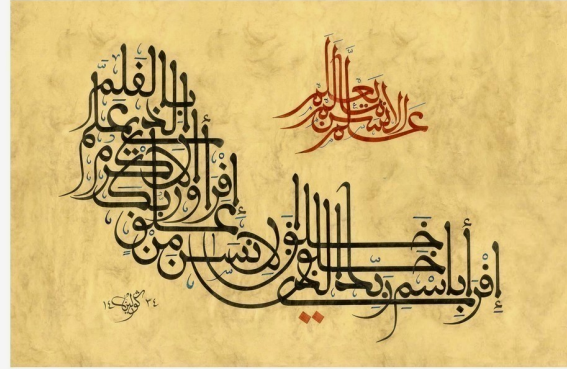 إقرأ بٱسم ربك الذي خلق
خلق الإنسٰن من علق
إقرأ وربك الأكرم
الذي علم بالقلم
علم الإنسٰن ما لم يعلم
١٤٣٤